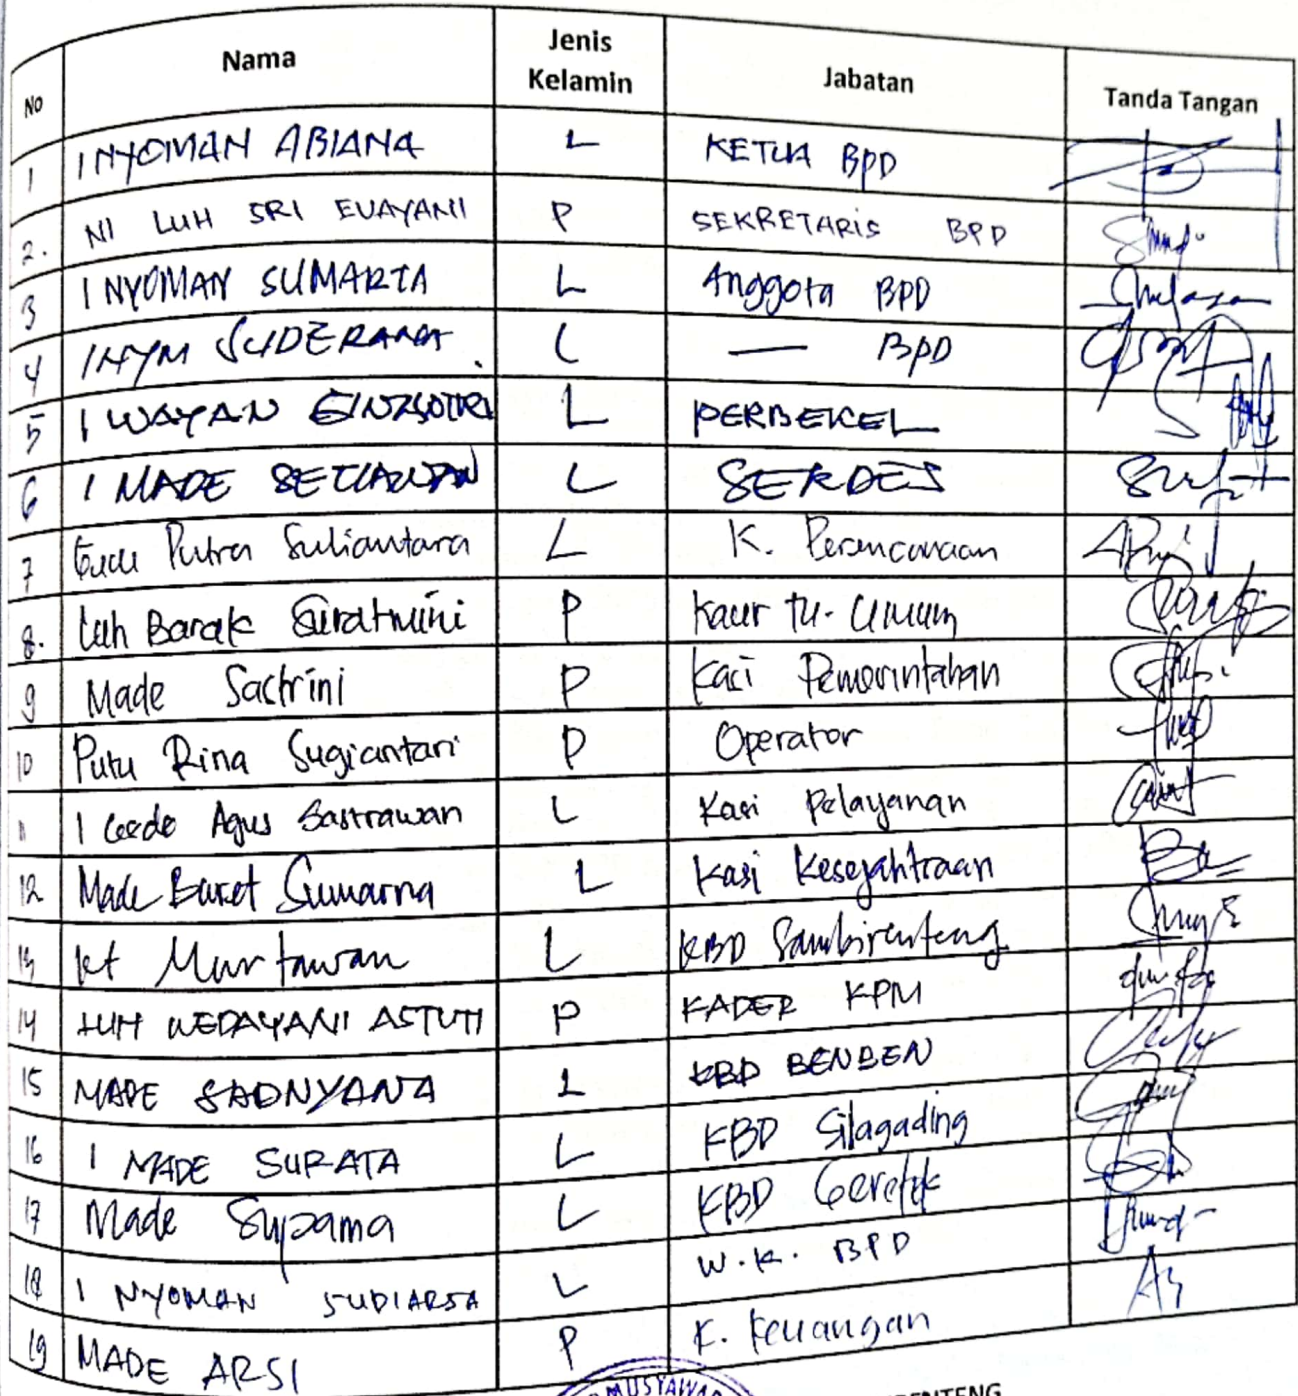 No Nama Jenis Kelamin Jabatan Tanda Tangan
1 I NYOMAN ABIANA L KETUA BPD
2. NI LUH SRI EVAYANI P SEKRETARIS BPD
3 I NYOMAN SUMARTA L Anggota BPD
4 I NYM SUDERANA L — BPD
5 I WAYAN L PERBEKEL
6 I MADE SETIAWAN L SEKDES
7 Gede Putra Suliantara L K. Perencanaan
8. Luh Barak Suratmini P Kaur tu. Umum
9 Made Sastrini P Kasi Pemerintahan
10 Putu Rina Sugiantari P Operator
11 I Gede Agus Sastrawan L Kasi Pelayanan
12 Made Buket Sumarna L Kasi Kesejahtraan
13 Kt Murtawan L KBD Sambirenteng
14 LUH WEDAYANI ASTUTI P KADER KPM
15 MADE SADNYANA L KBD BENBEN
16 I MADE SURATA L KBD Silagading
17 Made Supama L KBD Geretek
18 I NYOMAN SUDIARSA L W.K. BPD
19 MADE ARSI P K. Keuangan
MUSYAWAR
ENTENG